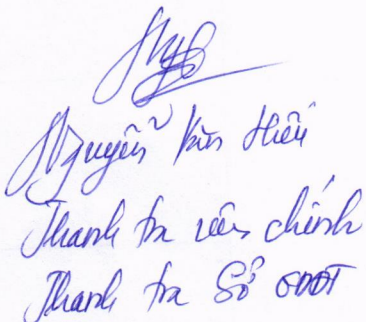 Nguyễn Văn Hiếu
Thanh tra viên chính
Thanh tra Sở GDĐT